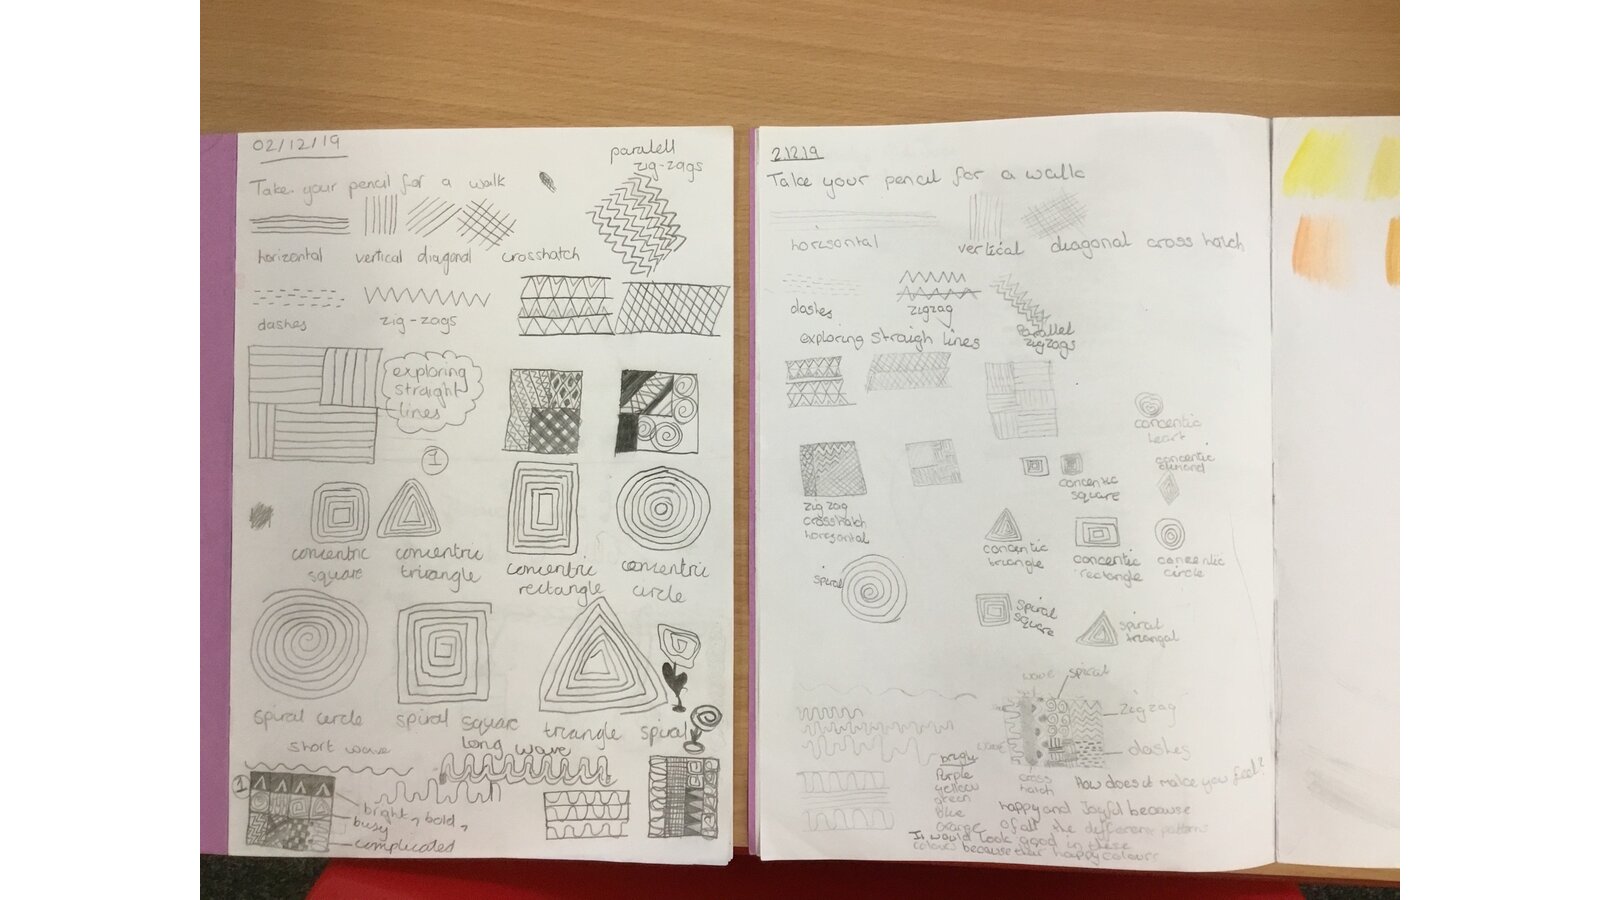 02/12/19
Take your pencil for a walk
paralell
zig-zags
horizontal
vertical
diagonal
crosshatch
dashes
zig-zags
exploring
straight
lines
1
concentric
square
concentric
trirangle
concentric
rectangle
concentric
circle
spiral circle
spiral square
triangle spiral
short wave
long wave
1
bright, bold,
busy
complicated
2.12.19
Take your pencil for a walk
horisontal
vertical
diagonal cross hatch
dashes
zigzag
Parallel
zigzags
exploring straigh lines
concentic
heart
concentic
square
concentic
zig zag
crosshatch
horesontal
concentic
triangle
concentic
rectangle
concentic
circle
spiral
spiral
square
spiral
triangal
wave
spiral
zigzag
wave
dashes
cross
hatch
Purple
yellow
green
Blue
orange
How does it make you feel?
happy and Joyful because
of all the different patterns
It would look good in these
colours because their happy colours